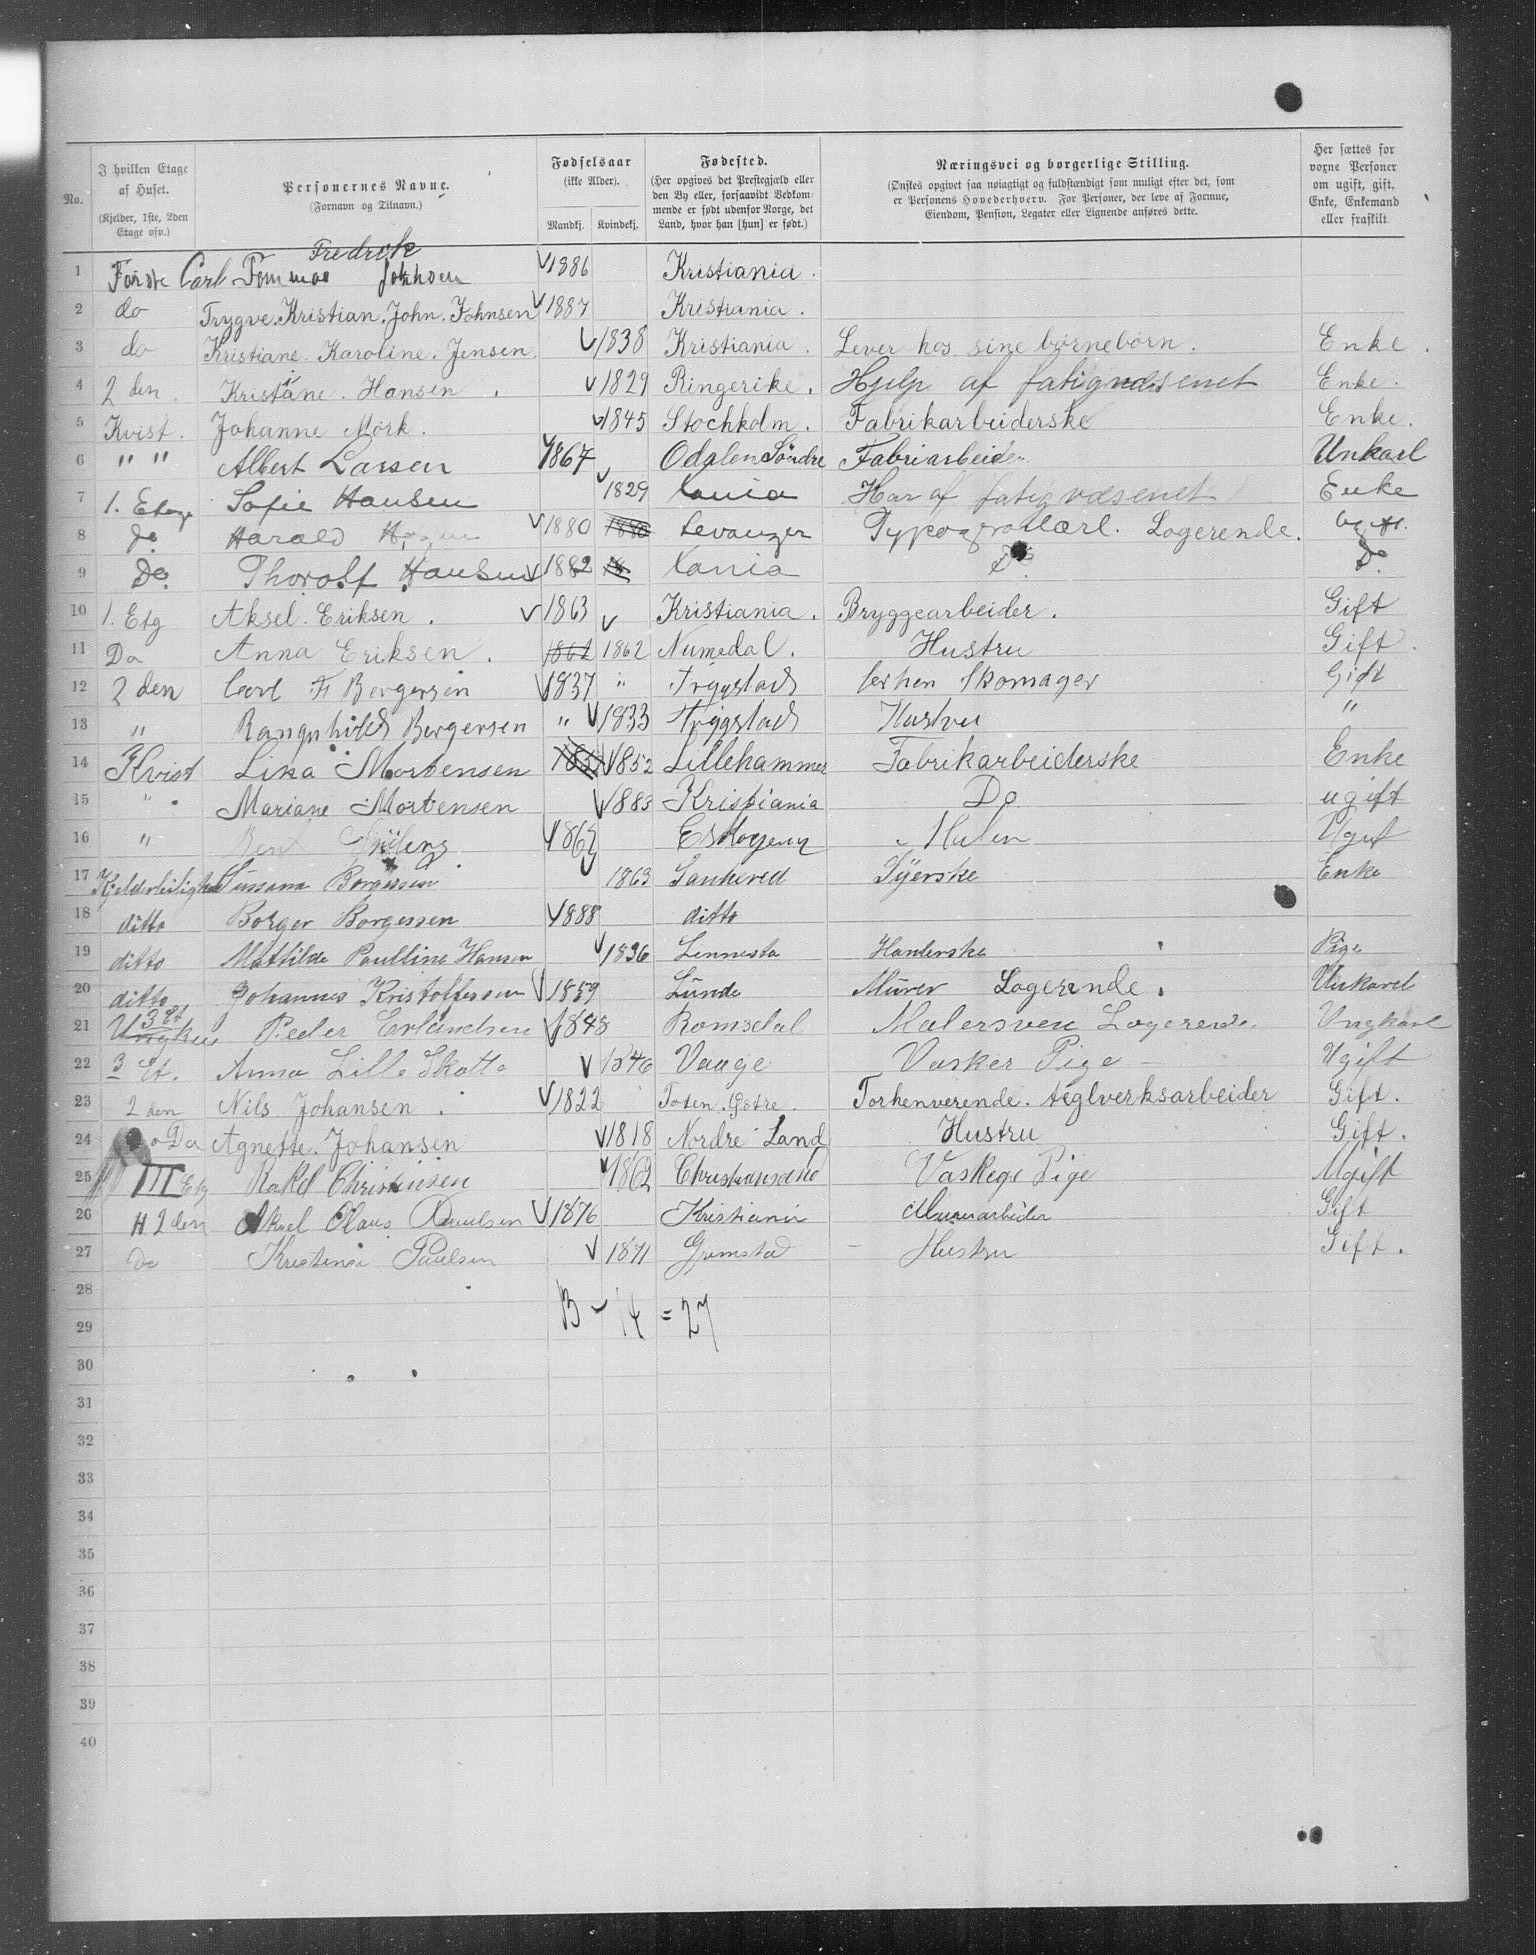 No.
I hvilken Etage af Huset. (Kjelder, 1ste, 2den Etage osv.)
Personernes Navne. (Fornavn og Tilnavn.)
Fødselsaar (ikke Alder). Mandkj. Kvindekj.
Fødested. (Her opgives det Prestegjæld eller den By eller, forsaavidt Vedkommende er født udenfor Norge, det Land, hvor han [hun] er født.)
Næringsvei og borgerlige Stilling. (Ønskes opgivet saa nøiagtigt og fuldstændigt som muligt efter det, som er Personens Hovederhverv. For Personer, der leve af Formue, Eiendom, Pension, Legater eller Lignende anføres dette.
Her sættes for voxne Personer om ugift, gift, Enke, Enkemand eller fraskilt.
Fredrik
1 Første Carl Tommas Johnsen 1886 Kristiania.
2 do Trygve. Kristian. John. Johnsen 1887 Kristiania.
3 do Kristiane. Karoline. Jensen. 1838 Kristiania. Lever hos sine børnebørn. Enke.
4 2 den. Kristiane. Hansen. 1829 Ringerike. Hjelp af fatigvæsenet Enke.
5 Kvist. Johanne Mørk. 1845 Stochkolm. Fabrikarbeiderske Enke.
6 " " Albert Larsen 1867 Odalen Söndre Fabriarbeider Unkarl
7 1. Etage Sofie Hansen 1829 Xania Har af fatigvæsenet Enke
8 do Harald 1880 1880 Levanger Lagerende.
9 Do. Thorolf Hansen 1882 18 Xania Do. Do.
10 1. Etg Aksel. Eriksen. 1863 Kristiania. Bryggearbeider. Gift
11 Do Anna Eriksen. 1862 1862 Numedal. Hustru Gift.
12 2 den Carl F Bergersen 1837 " Trygstad forhen Skomager Gift
13 " Rangnhild Bergersen " 1833 Trygstad Hustru "
14 Kvist Lina Mortensen 1852 Lillehammer Fabrikarbeiderske Enke
15 " Mariane Mortensen 1883 Kristiania Do ugift
16 " Maler Ugift
17 Kjelderleilighed Sussana Borgessen 1863 Sanhered Syerske Enke
18 ditto Borger Borgessen 1888 ditto
19 ditto Mattilde Paulline Hansen 1836 Lennesta Handerske Pige
20 ditto Johannes Kristoffersen 1859 Lunde Murer Logerende. Unkarel
21 3 Et Ungkar Peder Erlandsen 1848 Romsdal Malersven Logerende. Ungkarl
22 3 Et. Anna Lille Skotte 1846 Vaage Vasker Pige - Ugift
23 2 den Nils Johansen. 1822 Toten. Østre. Forhenverende. teglverksarbeider Gift.
24 Do Agnette. Johansen 1818 Nordre Land Hustru Gift.
25 III Etg Rakel Christensen 1862 Christiansand Vaskege Pige Ugift
26 H 2 den Aksel Olaus Paulsen 1876 Kristiania Murarbeider Gift
27 do Kristense Paulsen 1871 Grimstad - Hustru Gift.
28
13 - 14 = 27
29
30
31
32
33
34
35
36
37
38
39
40